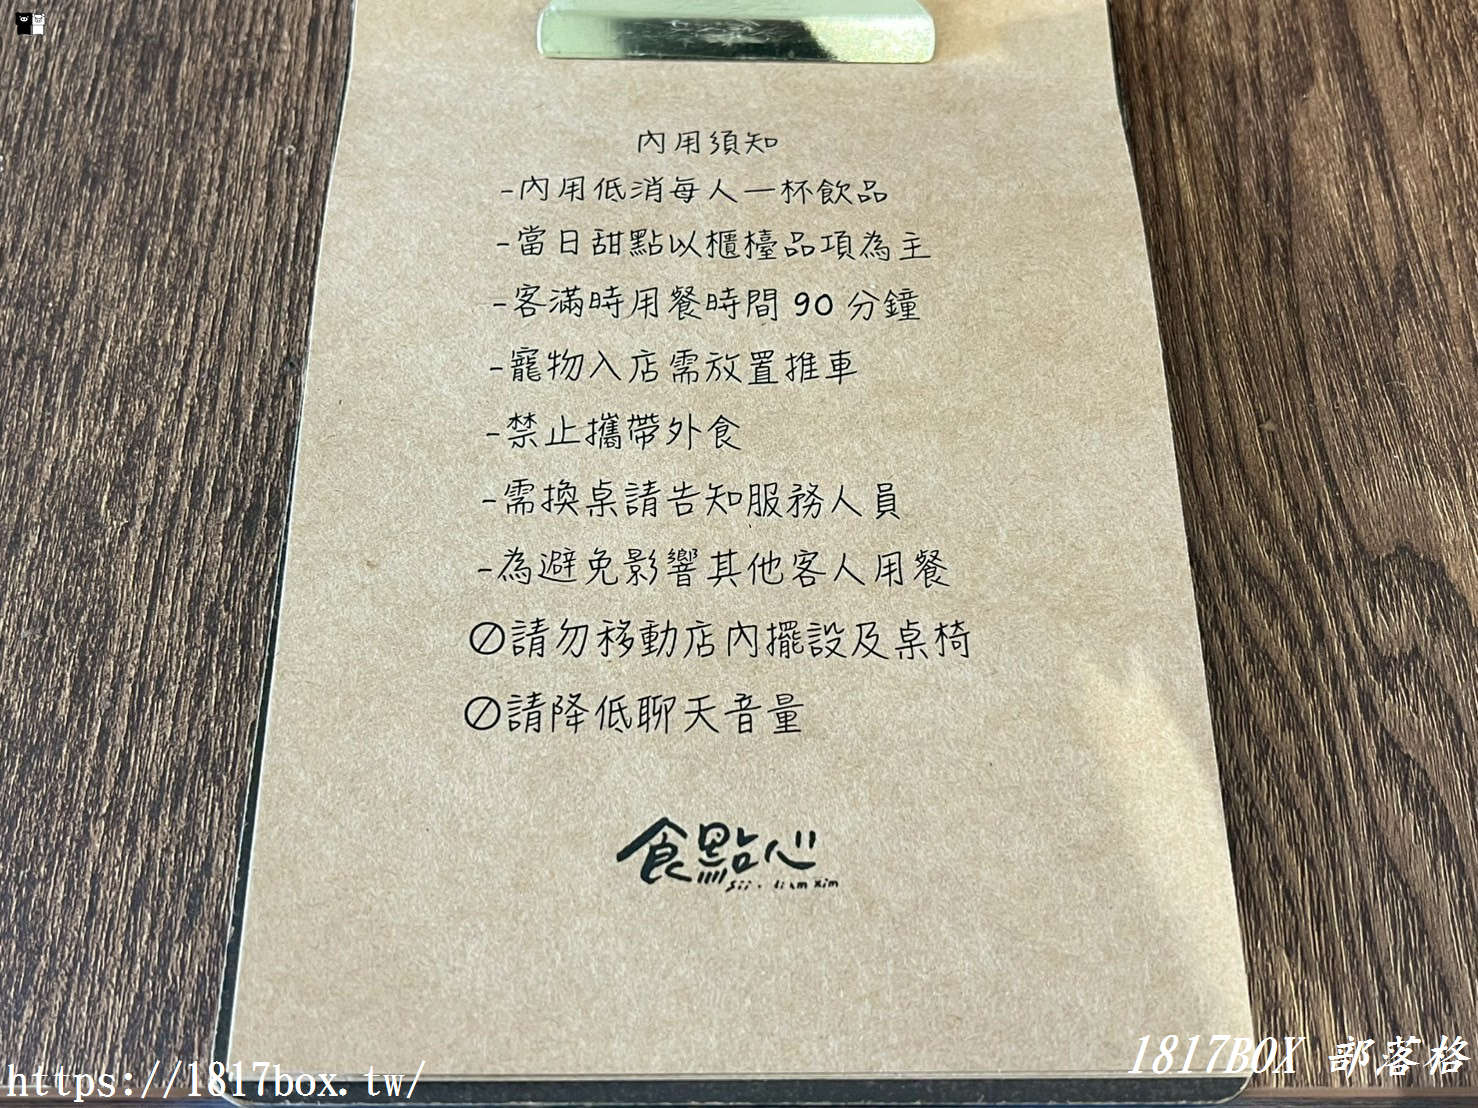 內用須知
-內用低消每人一杯飲品
-當日甜點以櫃檯品項為主
-客滿時用餐時間 90 分鐘
-寵物入店需放置推車
-禁止攜帶外食
-需換桌請告知服務人員
-為避免影響其他客人用餐
⊘請勿移動店內擺設及桌椅
⊘請降低聊天音量
食點心
xim
https://1817box.tw/
1817BOX 部落格